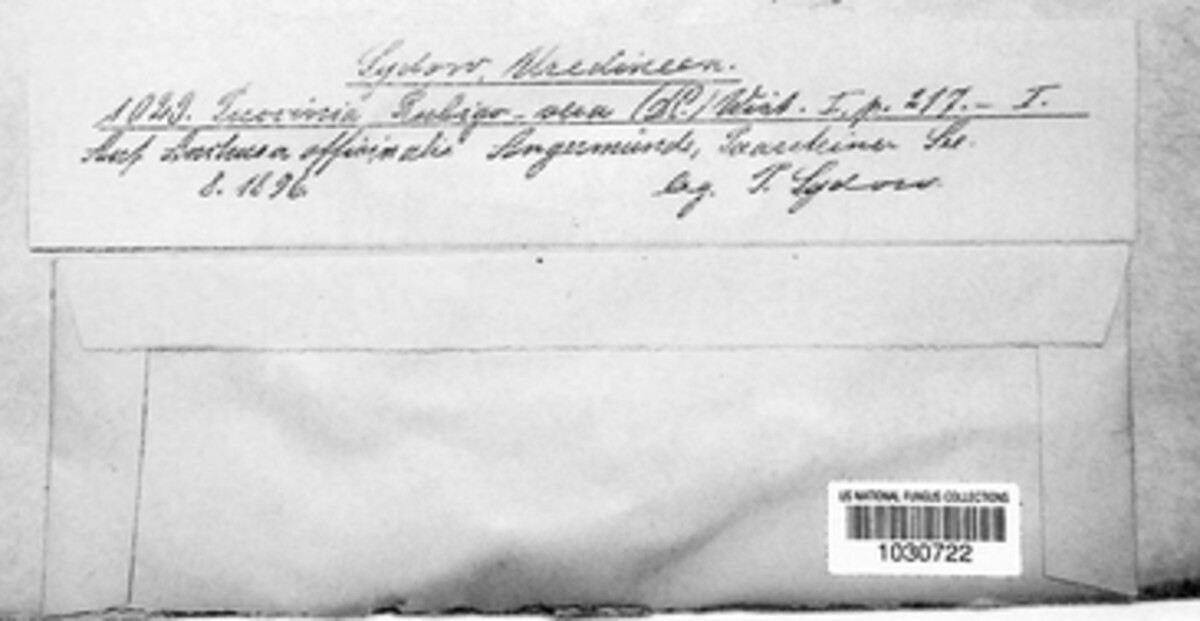 Sydow, Uredineen.
1029. Puccinia Rubigo-vera (DC.) Wint. I, p. 217. - I.
Auf Anchusa officinalis Angermünde, Paarsteiner See.
8. 1896 leg. P. Sydow.
US NATIONAL FUNGUS COLLECTIONS
1030722